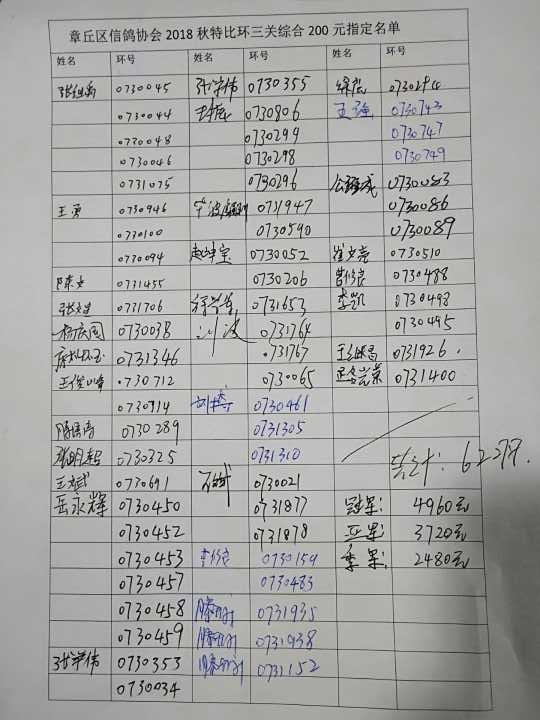 章丘区信鸽协会2018秋特比环三关综合200元指定名单
姓名 环号 姓名 环号 姓名 环号
0730045 张学伟 0730355 0730294
0730044 0730806 王强 0730743
0730048 0730299 0730747
0730046 0730298 0730749
0731075 0730296 0730083
王勇 0730946 0731947 0730086
0730100 0730590 0730089
0730094 0730052 崔文亮 0730510
陈文 0731455 0730206 0730488
张文建 0731706 0731653 李凯 0730498
杨庆国 0730038 0731764 0730495
0731346 0731767 0731926
王俊峰 0730712 0730065 0731400
0730914 0730461
0730289 0731305
张明超 0730325 0731310
王斌 0730691 0730021
岳永辉 0730450 0731877 冠军: 4960元
0730452 0731878 亚军: 3720元
0730453 李修良 0730159 季军: 2480元
0730457 0730483
0730458 0731935
0730459 0731938
张学伟 0730353 0731152
0730034